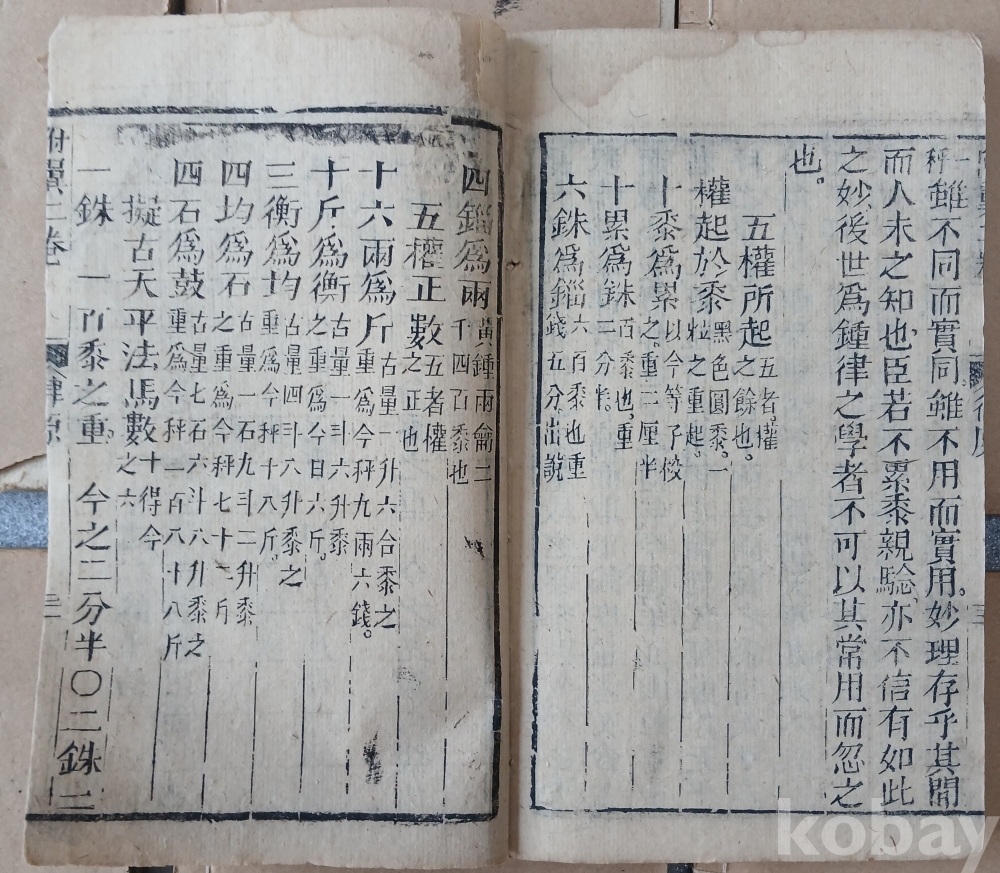 秤雖不同而實同。雖不用而實用。妙理存乎其閒
而人未之知也。臣若不累黍親驗、亦不信有如此
之妙。後世爲鍾律之學者不可以其常用而忽之
也。
五權所起五者權之餘也。
權起於黍黑色圓黍。一粒之重起。
十黍爲累以今等子校之。重二厘半
十累爲銖百黍也、重二分半。
六銖爲錙六百黍也重錢五分出說
律原
四錙爲兩黃鍾兩龠二千四百黍也
五權正數五者權之正也
十六兩爲斤古量一升六合黍之重爲今秤九兩六錢。
十斤爲衡古量一斗六升黍之重爲今日六斤。
三衡爲均古量四斗八升黍之重爲今秤十八斤。
四均爲石古量一石九斗二升黍之重爲今秤七十二斤
四石爲鼓古量七石六斗八升黍之重爲今秤二百八十八斤
擬古天平法馬數十得今之六
一銖 一百黍之重。 今之二分半〇二銖二
附卷 律原 三
kobay